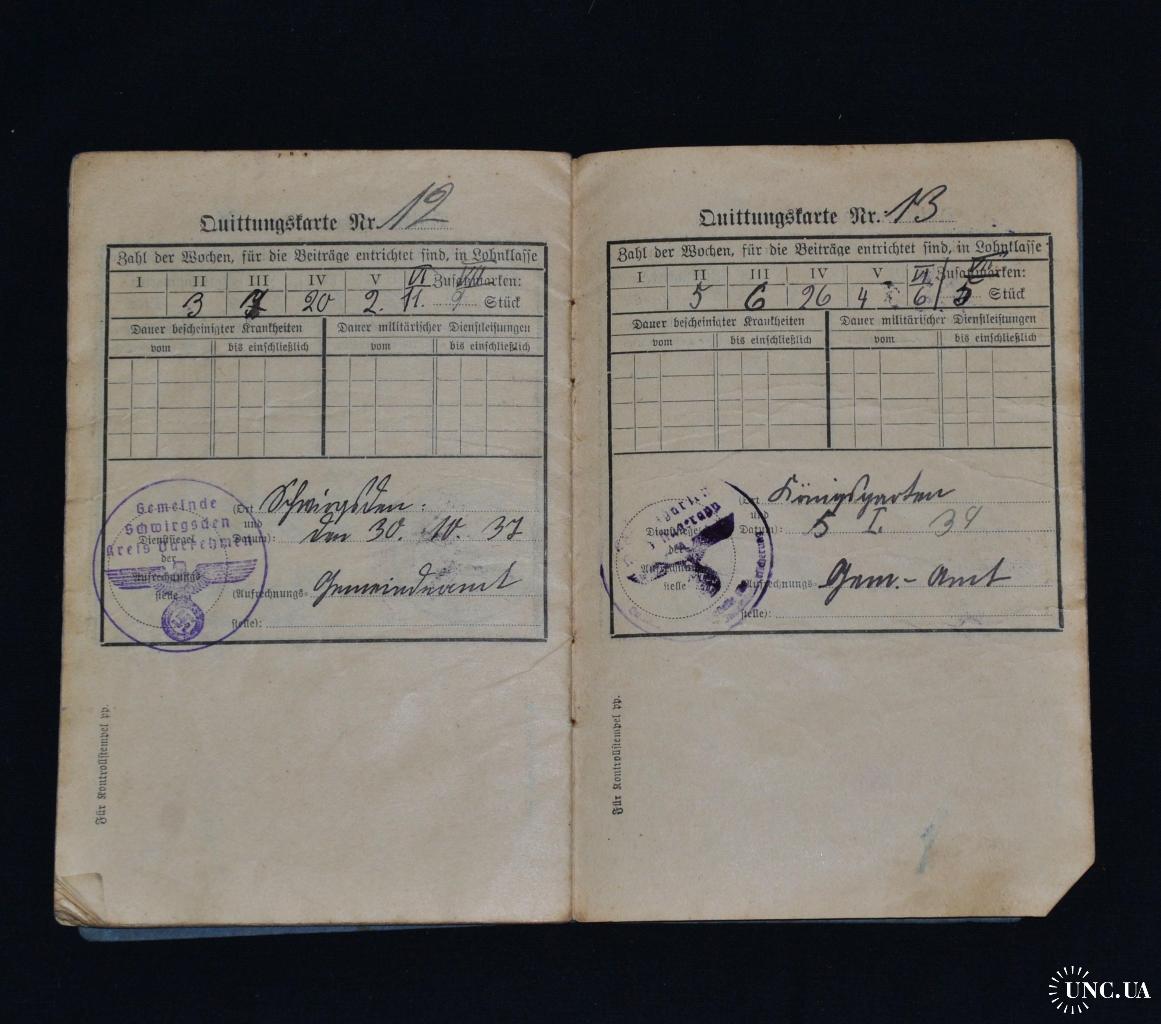 Quittungskarte Nr. 12
Zahl der Wochen, für die Beiträge entrichtet sind, in Lohnklasse
I II III IV V VI Zusatzmarken: VII
3 7 20 2. 11. 9 Stück
Dauer bescheinigter Krankheiten Dauer militärischer Dienstleistungen
vom bis einschließlich vom bis einschließlich
Gemeinde
Schwirgsden
Kreis Darkehmen
Dienstsiegel
der
Aufrechnungs
stelle
(Ort Schwirgsden.
und
Datum): den 30. 10. 37
(Aufrechnungs= Gemeindeamt
stelle):
Für Kontrollstempel pp.
Quittungskarte Nr. 13
Zahl der Wochen, für die Beiträge entrichtet sind, in Lohnklasse
I II III IV V VI Zusatzmarken: VII
5 6 26 4 6 5 Stück
Dauer bescheinigter Krankheiten Dauer militärischer Dienstleistungen
vom bis einschließlich vom bis einschließlich
Dienstsiegel
der
Aufrechnungs
stelle
(Ort Königsgarten
und
Datum): 5 I. 39
(Aufrechnungs= Gem.-Amt
stelle):
Für Kontrollstempel pp.
UNC.UA